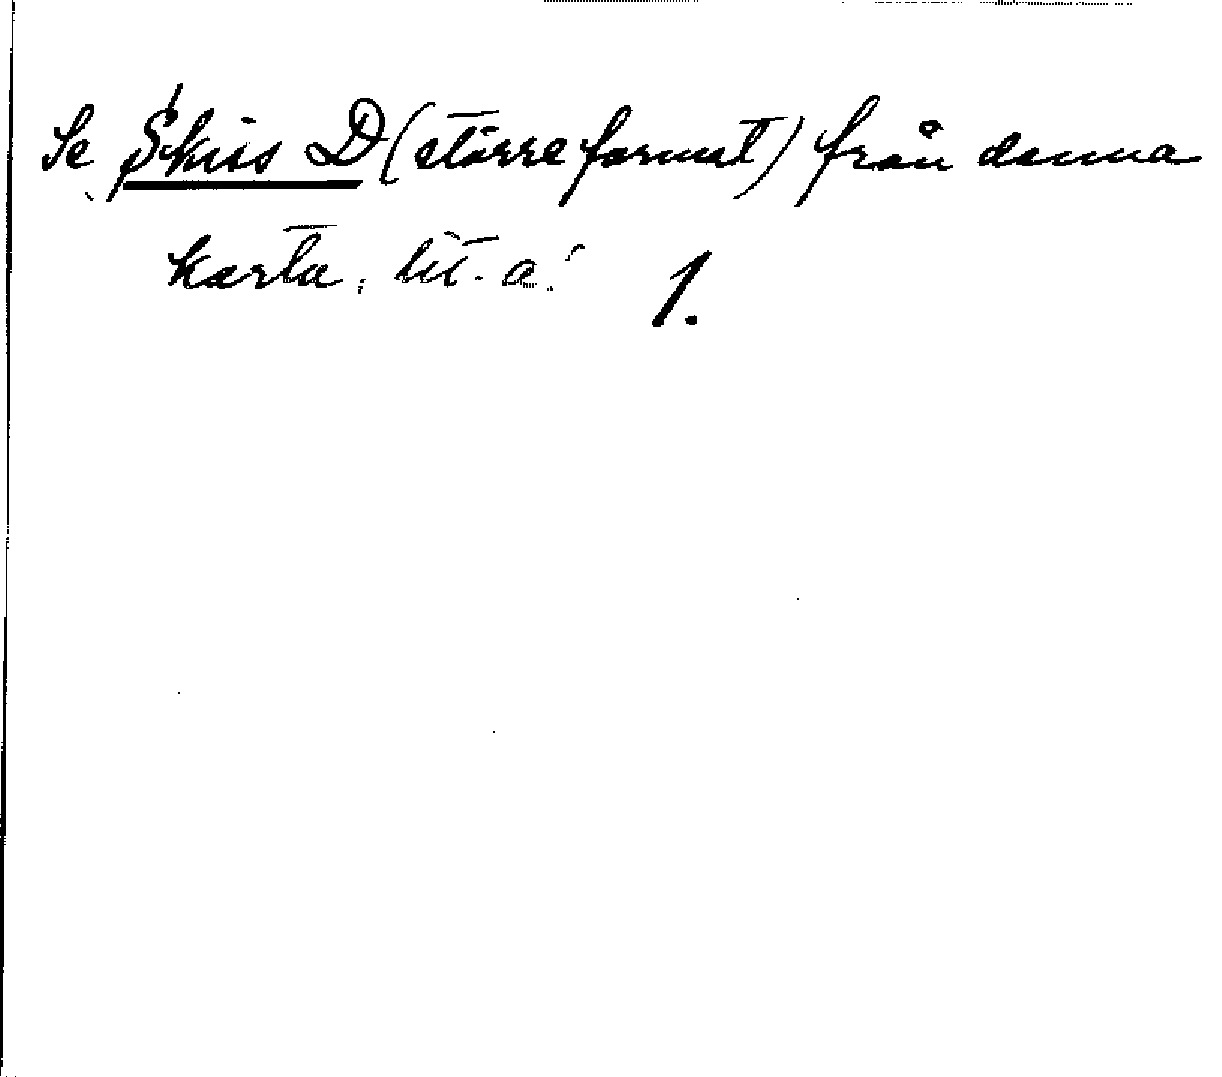 Se Skiss D (större format) från denna
karta, lit. a! 1.